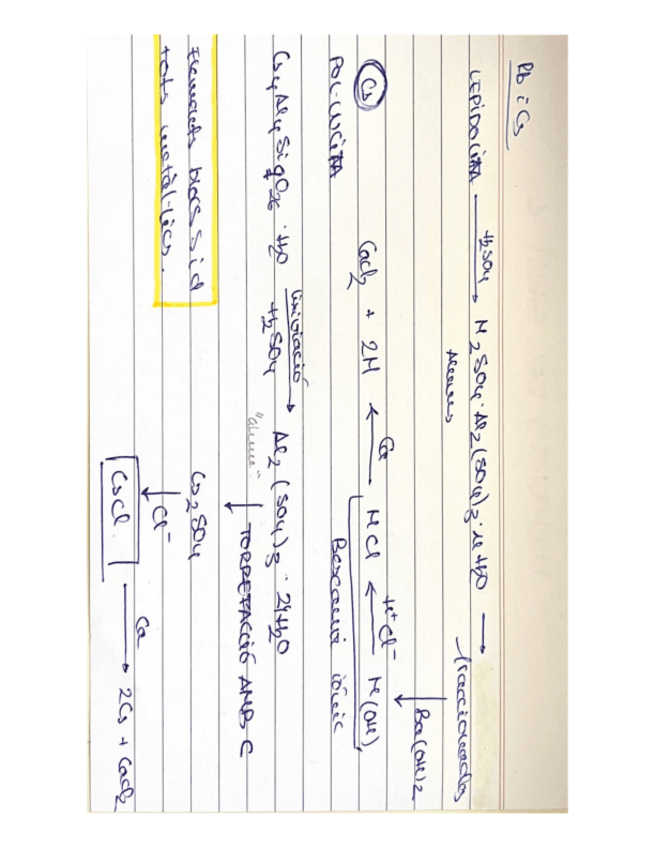 Rb i Cs
LEPIDOLITA → H2SO4 → M2SO4·Al2(SO4)3·24H2O →
Alums
fraccionades
↓ Ba(OH)2
CaCl2 + 2M ← Ca MCl ← H+Cl- M(OH)
Bescanvi iònic
Cs
POL·LUCITA
Cs4Al4Si9O26·H2O lixiviació → H2SO4 Al2(SO4)3·24H2O
"alums"
↓ TORREFACCIÓ AMB C
Cs2SO4
↓ Cl-
CsCl → Ca 2Cs + CaCl2
Elements blocs s i d
tots metàl·lics.